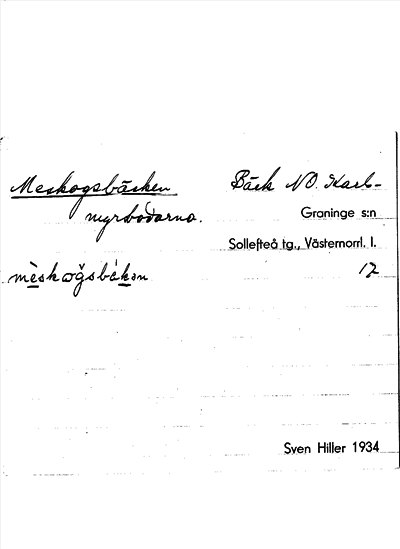 Meskogsbäcken Bäck NO. Karl-
myrbodarna.
Graninge s:n
Sollefteå tg., Västernorrl. l.
12
Sven Hiller 1934